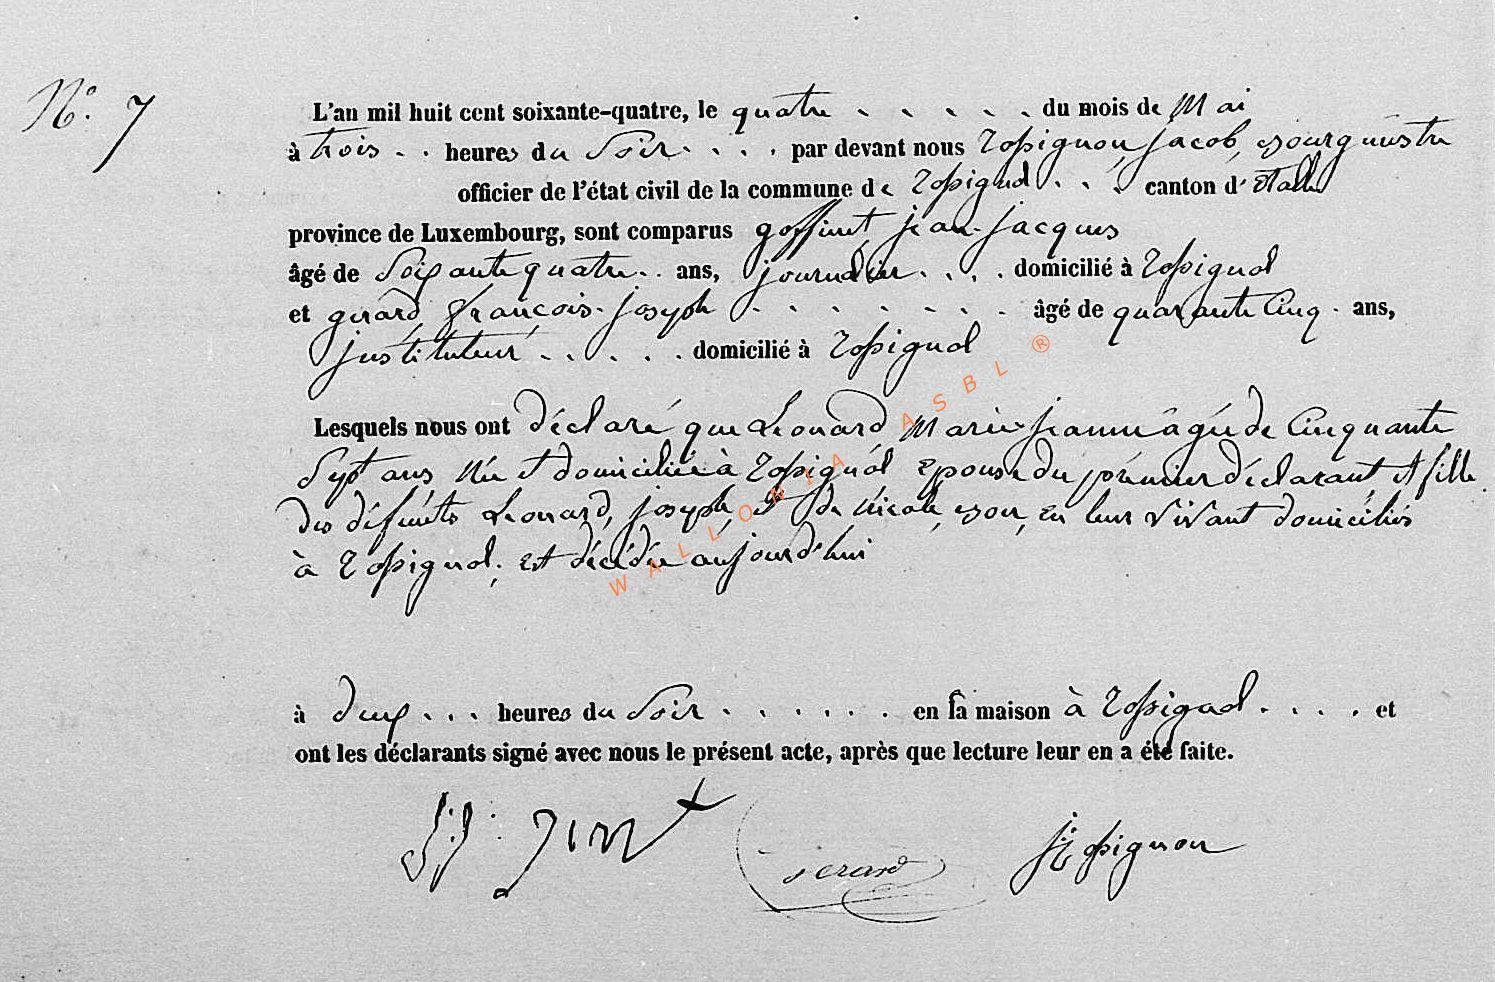 N° 7
L'an mil huit cent soixante-quatre, le quatre . . . . . du mois de Mai
à trois . . heures du Soir . . . . par devant nous Rossignon, jacob, Bourgmestre
officier de l'état civil de la commune de Rossignol . . . canton d'Etalle
province de Luxembourg, sont comparus goffinet jean-jacques
âgé de Soixante quatre . . ans, journalier . . . . domicilié à Rossignol
et gerard françois-joseph . . . . . . . âgé de quarante Cinq . ans,
instituteur . . . . . domicilié à Rossignol
Lesquels nous ont déclaré que Léonard Marie-jeanne âgée de Cinquante
Sept ans née et domiciliée à Rossignol Epouse du prémier déclarant et fille
des défunts Léonard, joseph, et de nicole, en leur vivant domiciliés
à Rossignol, est décédée aujourd'hui
à deux . . . heures du Soir . . . . . . en sa maison à Rossignol . . . . et
ont les déclarants signé avec nous le présent acte, après que lecture leur en a été faite.
gerard
J Rossignon
WALLONIA ASBL ®